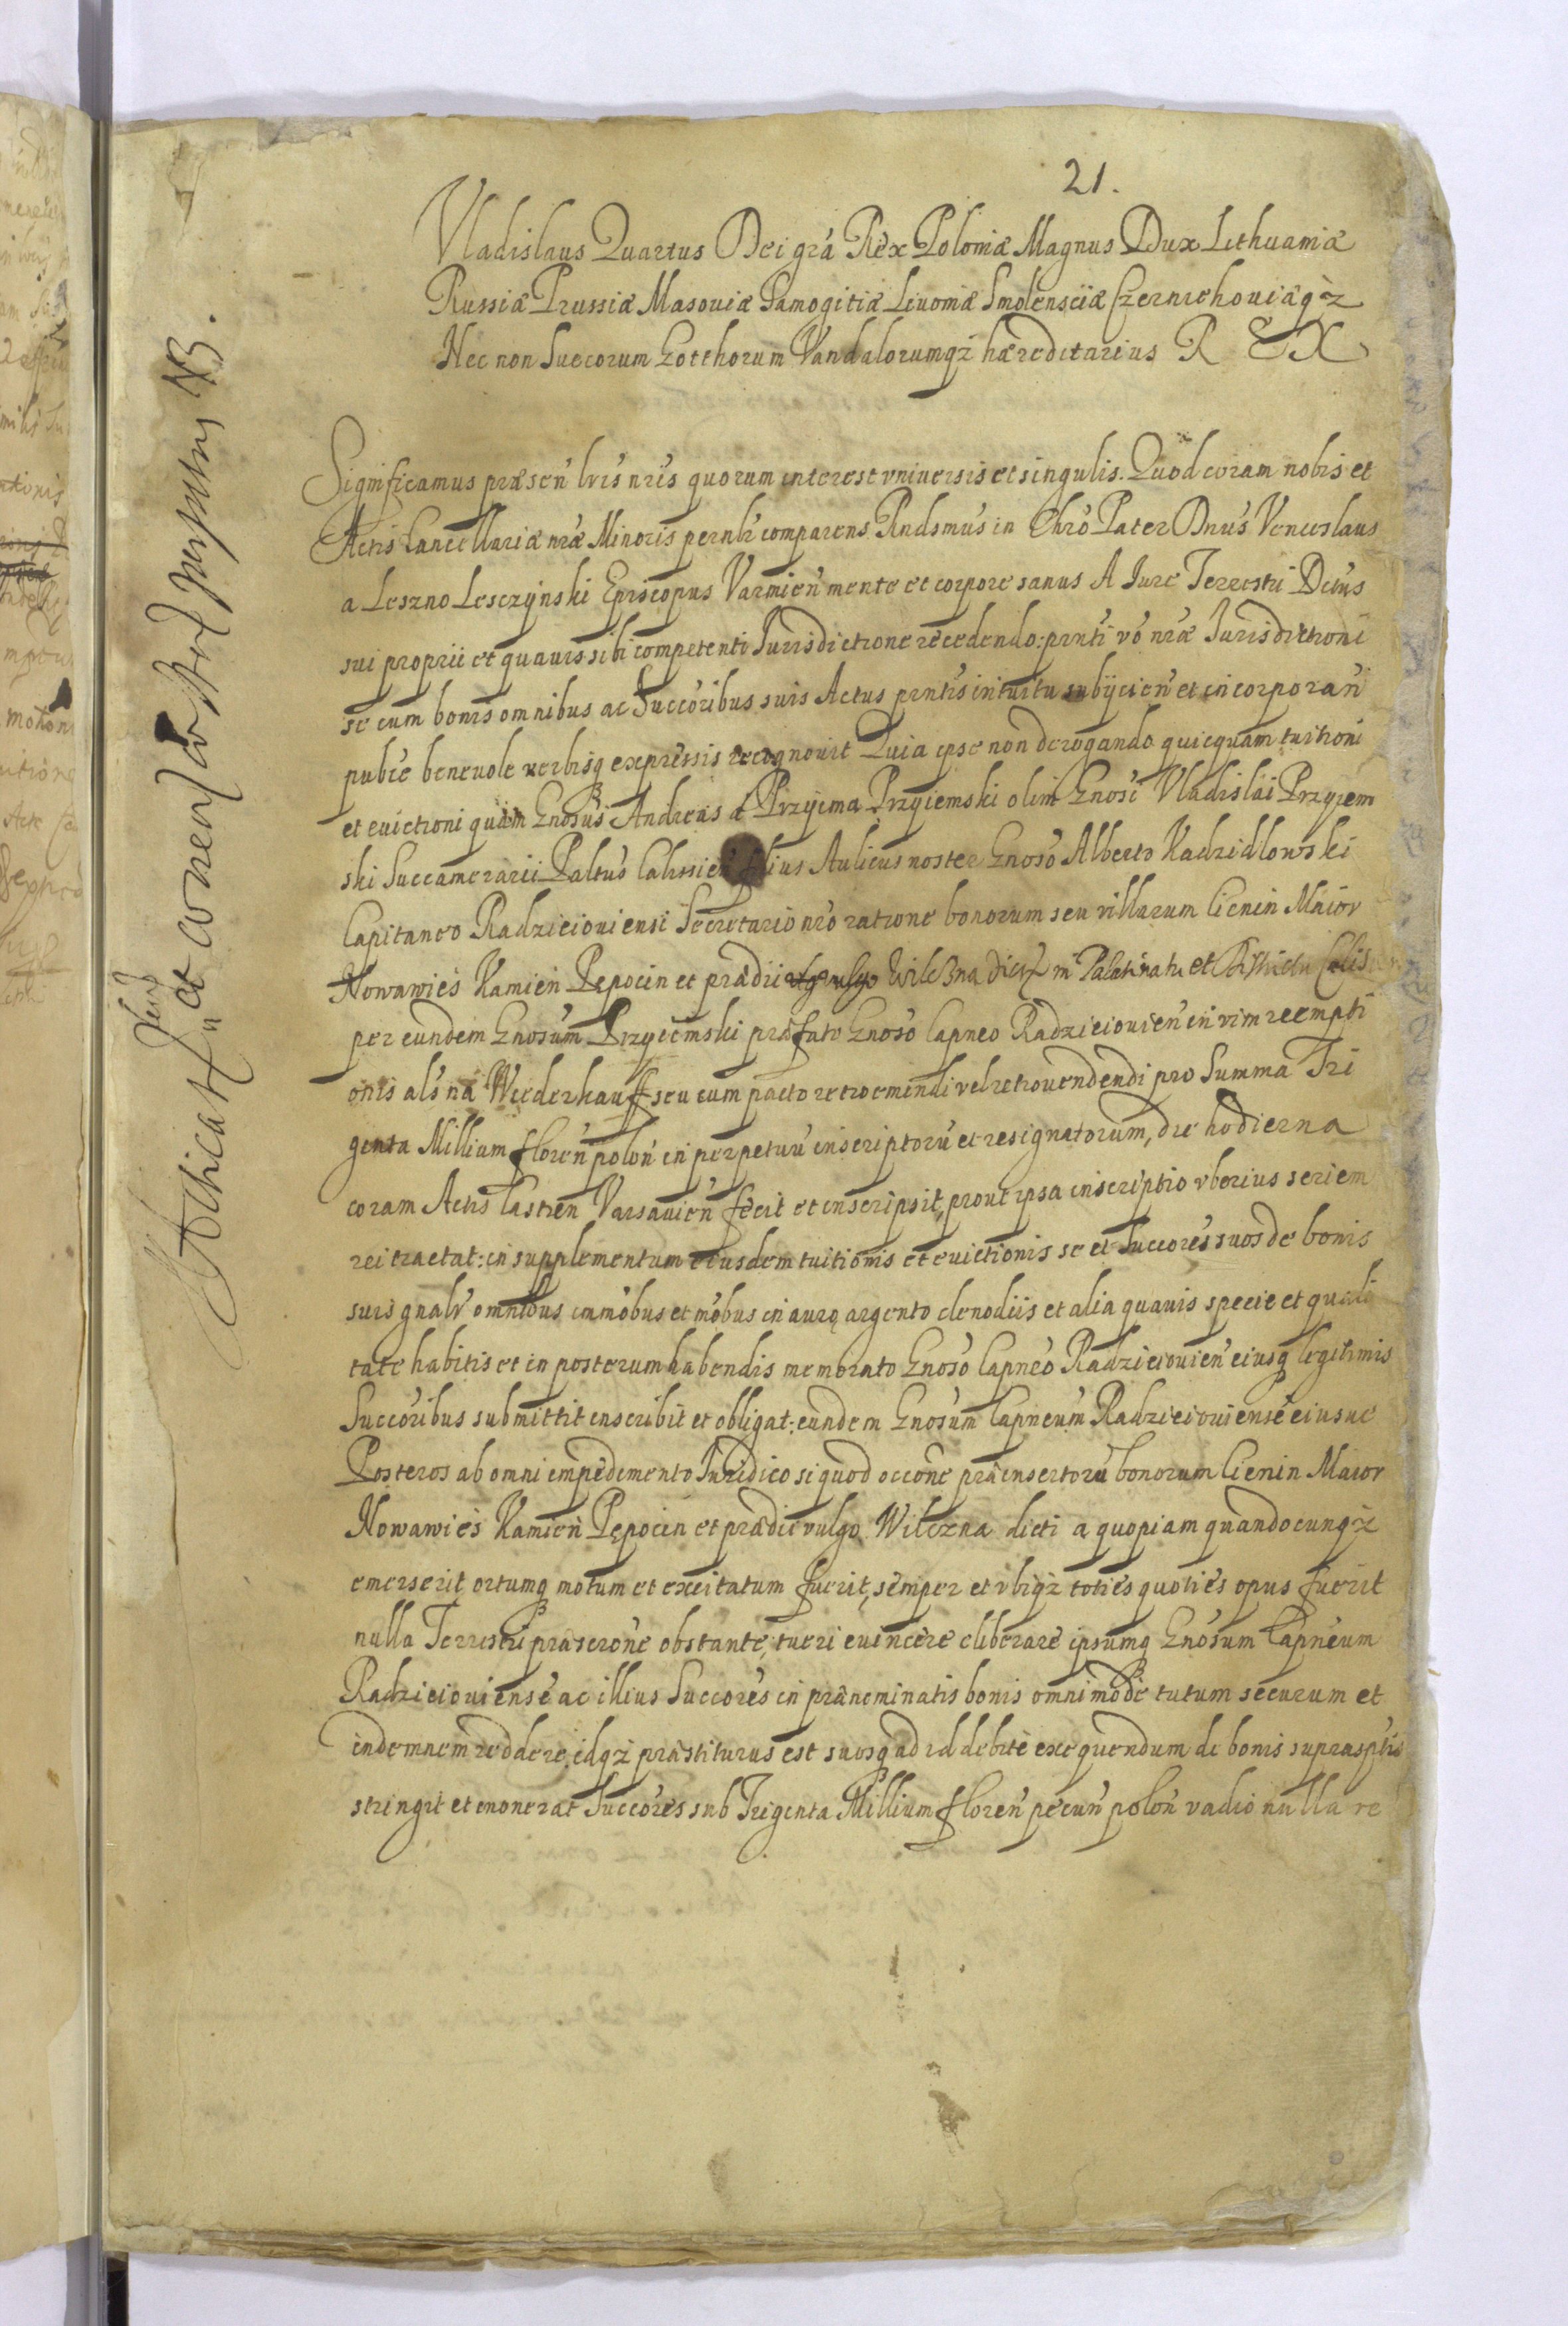 21.
Vladislaus Quartus Dei grã Rex Poloniæ Magnus Dux Lithuaniæ
Russiæ Prussiæ Masouiæ Samogitiæ Liuoniæ Smolensciæ Czerniehouiæqz
Nec non Suecorum Gotthorum Vandalorumqz hæreditarius REX
Significamus præsen̄ lrīs nrīs quorum interest vniuersis et singulis. Quod coram nobis et
Actis Cancellariæ nræ Minoris pernlr̄ comparens Rndsmus in Chrō Pater Dnus Venceslaus
a Leszno Lesczynski Episcopus Varmien̄ mente et corpore sanus A Iure Terrestri Dctus
sui proprii et quauis sibi competenti Iurisdictione recedendo: prnti vō nræ Iurisdictioni
se cum bonis omnibus ac Succoribus suis Actus prntis intuitu subijcien̄ et incorporan̄
publce beneuole verbisq expressis recognouit Quia ipse non derogando quicquam tuitioni
et euictioni quam Gnosus Andreas a Przyima Przyiemski olim Gnosi Vladislai Przyiem
ski Succamerarii Paltus Calissien̄ filius Aulicus noster Gnoso Alberto Kadzidlowski
Capitaneo Radzieiouiensi Secretario nrō ratione bonorum seu villarum Cienin Maior
Nowawies Kamien Pepocin et prædii vulgo Wilczna dict in Palatinatu et Districtu Calis
per eundem Gnosum Przyiemski præfato Gnoso Capneo Radzieiouien̄ in vim reempti
onis als na Wyderkauff seu cum pacto retroemendi vel retrouendendi pro Summa Tri
genta Millium floren̄ polon̄ in perpetuū inscriptorū et resignatorum, die hodierna
coram Actis Castren̄ Varsauien̄ fecit et inscripsit, prout ipsa inscriptio vberius seriem
rei tractat: in supplementum eiusdem tuitionis et euictionis se et Succores suos de bonis
suis gnalr̄ omnibus immobus et mobus in auro argento clenodiis et alia quauis specie et quali
tate habitis et in posterum habendis memorato Gnoso Capneo Radzieiouien̄ eiusq legitimis
Succoribus submittit inscribit et obligat: eundem Gnosum Capneum Radzieiouiense eiusue
Posteros ab omni impedimento Iuridico si quod occōne præinsertorū bonorum Cienin Maior
Nowawies Kamien Pepocin et prædii vulgo Wilczna dicti a quopiam quandocunqz
emerserit ortumq motum et excitatum fuerit, semper et vbiqz toties quoties opus fuerit
nulla Terrestri præscrōne obstante, tueri euincere eliberare ipsumq Gnosum Capneum
Radzieiouiense ac illius Succores in prænominatis bonis omnimode tutum securum et
indemnem reddere, idqz præstiturus est suosq ad id debite exequendum de bonis suprasptis
stringit et inonerat Succores sub Trigenta Millium floren̄ pecun̄ polon̄ vadio nulla re